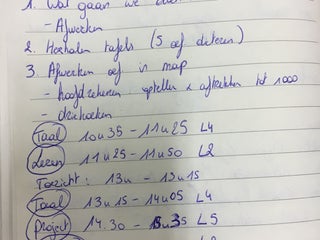 1. Wat gaan we doen
- Afwerken
2. Herhalen tafels (5 oef dicteren)
3. Afwerken oef in map
- hoofdrekenen: optellen & aftrekken tot 1000
- driehoeken
Taal 10u35 - 11u25 L4
Lezen 11u25 - 11u50 L2
Toezicht: 13u - 13u15
Taal 13u15 - 14u05 L4
Project 14.30 - 15u35 L5